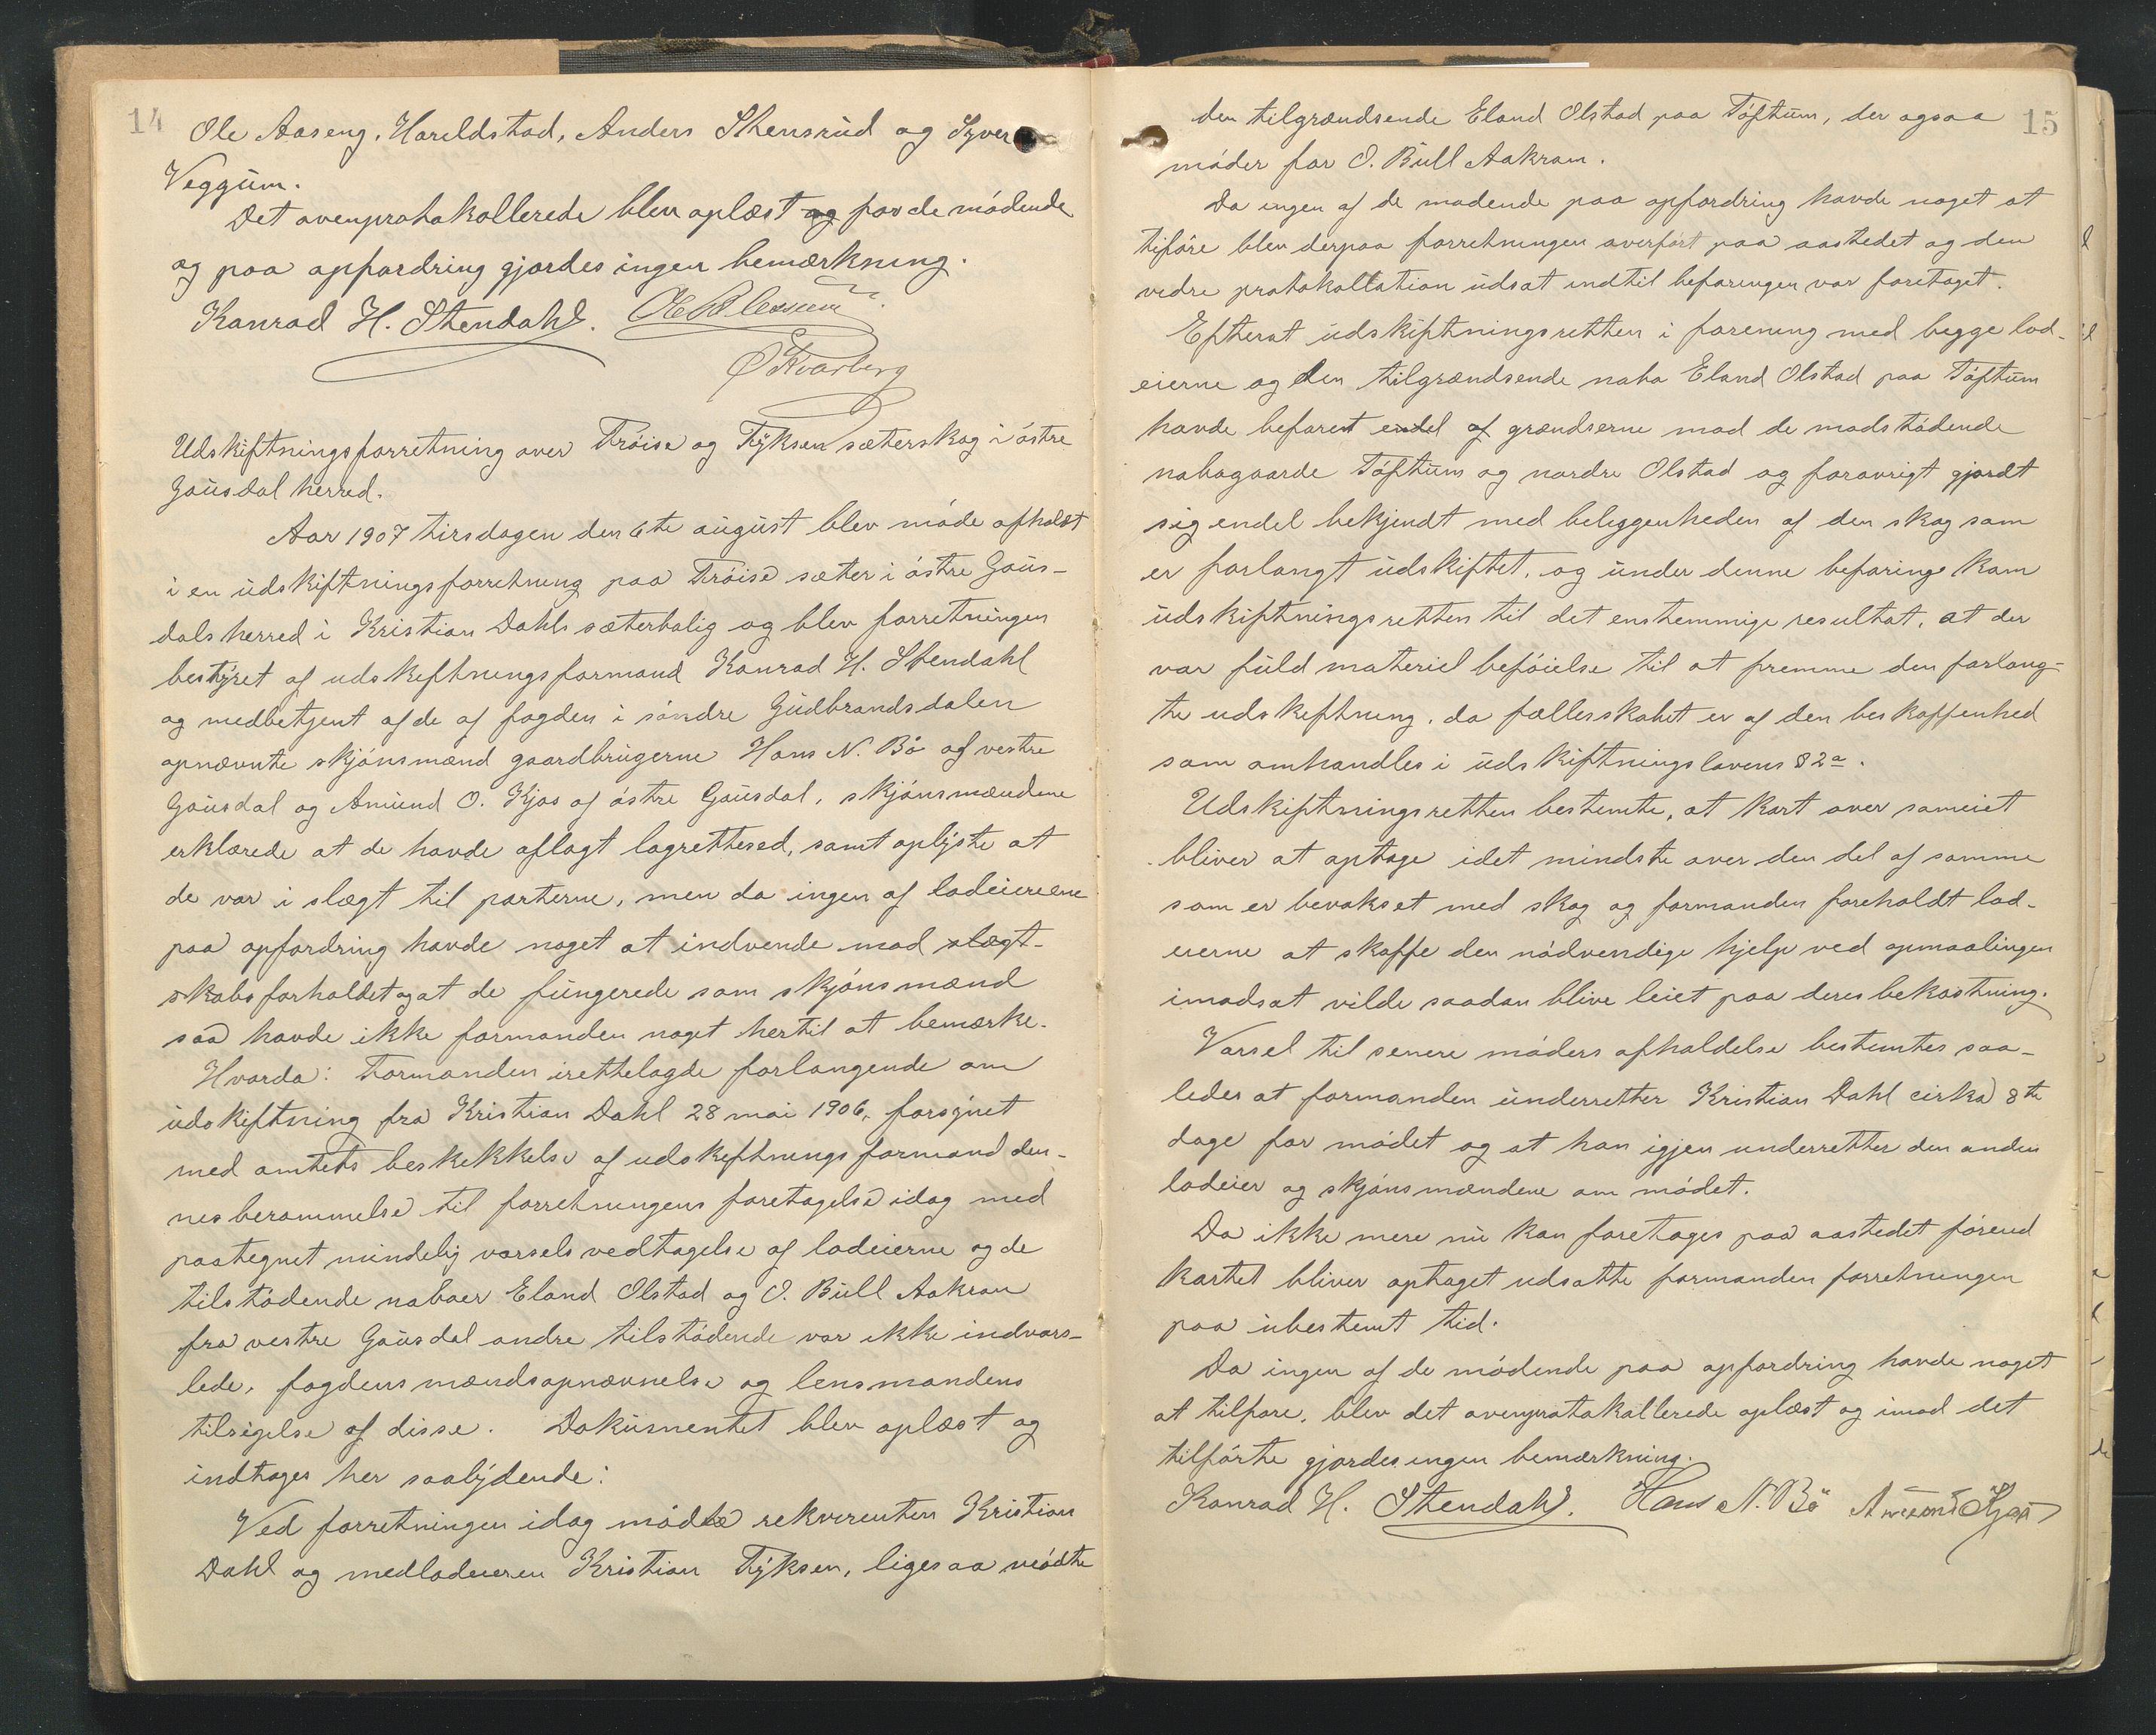 14
Ole Aaseng, Hareldstad, Anders Stensrud og Syver
Veggum.
Det ovenprotokollerede blev oplæst og for de mødende
og paa opfordring gjordes ingen bemærkning.
Konrad H. Stendahl.
O Kvarberg
Udskiftningsforretning over Trøise og Fyksen sæterskog i østre
Gausdal herred.
Aar 1907 tirsdagen den 6te august blev møde afholdt
i en udskiftningsforretning paa Trøise sæter i østre Gaus-
dals herred i Kristian Dahls sæterbolig og blev forretningen
bestyret af udskiftningsformand Konrad H. Stendahl
og medbetjent af de af fogden i søndre Gudbrandsdalen
opnævnte skjønsmænd gaardbrugerne Hans N. Bø af vestre
Gausdal og Amund O. Kjøs af østre Gausdal, skjønsmændene
erklærede at de havde aflagt lagretteed, samt oplyste at
de var i slægt til parterne, men da ingen af lodeierene
paa opfordring havde noget at indvende mod slægt-
skabsforholdet og at de fungerede som skjønsmænd
saa havde ikke formanden noget hertil at bemærke.
Hvorda: Formanden irettelagde forlangende om
udskiftning fra Kristian Dahl 28 mai 1906, forsynet
med amtets beskikkelse af udskiftningsformand den-
nes berammelse til forretningens foretagelse idag med
paategnet mindelig varsels vedtagelse af lodeierne og de
tilstødende naboer Eland Olstad og O. Bull Aakran
fra vestre Gausdal andre tilstødende var ikke indvars-
lede, fogdens mændsopnævnelse og lensmandens
tilsigelse af disse. Dokumentet blev oplæst og
indtages her saalydende:
Ved forretningen idag mødte rekvirenten Kristian
Dahl og medlodeieren Kristian Fyksen, ligesaa mødte
15
den tilgrændsende Eland Olstad paa Tøftum, der ogsaa
møder for O. Bull Aakran.
Da ingen af de mødende paa opfordring havde noget at
tiføre blev derpaa forretningen overført paa aastedet og den
vidre protokollation udsat indtil befaringen var foretaget.
Efterat udskiftningsretten i forening med begge lod-
eierne og den tilgrændsende nabo Eland Olstad paa Tøftum
havde befaret endel af grændserne mod de modstødende
nabogaarde Tøftum og nordre Olstad og forøvrigt gjordt
sig endel bekjendt med beliggenheden af den skog som
er forlangt udskiftet, og under denne befaring kom
udskiftningsretten til det enstemmige resultat, at der
var fuld materiel beføielse til at fremme den forlang-
te udskiftning, da fællesskabet er af den beskaffenhed
som omhandles i udskiftningslovens § 2a.
Udskiftningsretten bestemte, at kart over sameiet
bliver at optage idet mindste over den del af samme
som er bevokset med skog og formanden foreholdt lod-
eierne at skaffe den nødvendige hjelp ved opmaalingen
imodsat vilde saadan blive leiet paa deres bekostning.
Varsel til senere møders afholdelse bestemtes saa-
ledes at formanden underretter Kristian Dahl cirka 8te
dage før mødet og at han igjen underretter den anden
lodeier og skjønsmændene om mødet.
Da ikke mere nu kan foretages paa aastedet førend
kartet bliver optaget udsatte formanden forretningen
paa ubestemt tid.
Da ingen af de mødende paa opfordring havde noget
at tilføre, blev det ovenprotokollerede oplæst og imod det
tilførte gjordes ingen bemærkning.
Konrad H. Stendahl. Hans N. Bø Amund Kjøs